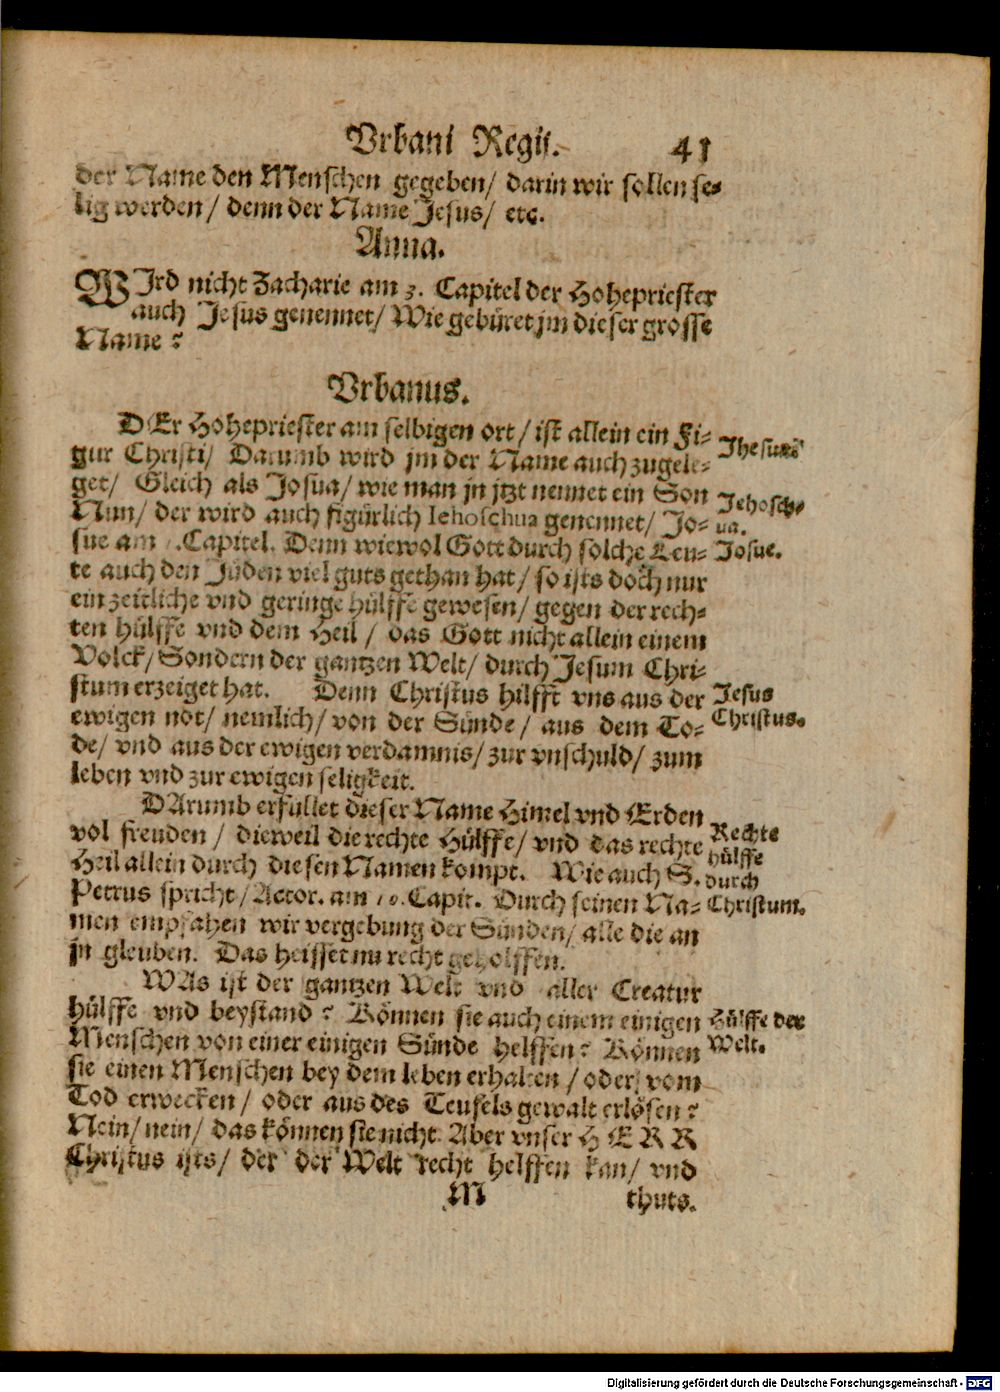 Vrbani Regii. 41
der Name den Menschen gegeben/ darin wir sollen se-
lig werden/ denn der Name Jesus/ etc.
Anna.
WJrd nicht Zacharie am 3. Capitel der Hohepriester
auch Jesus genennet/ Wie gebüret jm dieser grosse
Name?
Vrbanus.
DEr Hohepriester am selbigen ort/ ist allein ein Fi-
gur Christi/ Darumb wird jm der Name auch zugele-
get/ Gleich als Josua/ wie man jn jtzt nennet ein Son
Nun/ der wird auch figürlich Iehoschua genennet/ Jo-
sue am .Capitel. Denn wiewol Gott durch solche Leu-
te auch den Jüden viel guts gethan hat/ so ists doch nur
ein zeitliche vnd geringe hülffe gewesen/ gegen der rech-
ten hülffe vnd dem Heil/ das Gott nicht allein einem
Volck/ Sondern der gantzen Welt/ durch Jesum Chri-
stum erzeiget hat. Denn Christus hilfft vns aus der
ewigen not/ nemlich/ von der Sünde/ aus dem To-
de/ vnd aus der ewigen verdamnis/ zur vnschuld/ zum
leben vnd zur ewigen seligkeit.
DArumb erfüllet dieser Name Himel vnd Erden
vol freuden/ dieweil die rechte Hülffe/ vnd das rechte
Heil allein durch diesen Namen kompt. Wie auch S.
Petrus spricht/ Actor. am 10. Capit. Durch seinen Na-
men empfahen wir vergebung der Sünden/ alle die an
jn gleuben. Das heisset nu recht geholffen.
WAs ist der gantzen Welt vnd aller Creatur
hülffe vnd beystand? Können sie auch einem einigen
Menschen von einer einigen Sünde helffen? Können
sie einen Menschen bey dem leben erhalten/ oder vom
Tod erwecken/ oder aus des Teufels gewalt erlösen?
Nein/ nein/ das können sie nicht. Aber vnser HERR
Christus ists/ der der Welt recht helffen kan/ vnd
M thuts.
Jhesus
Jehosch-
ua.
Josue.
Jesus
Christus.
Rechte
hülffe
durch
Christum.
Hülffe der
Welt.
Digitalisierung gefördert durch die Deutsche Forschungsgemeinschaft - DFG